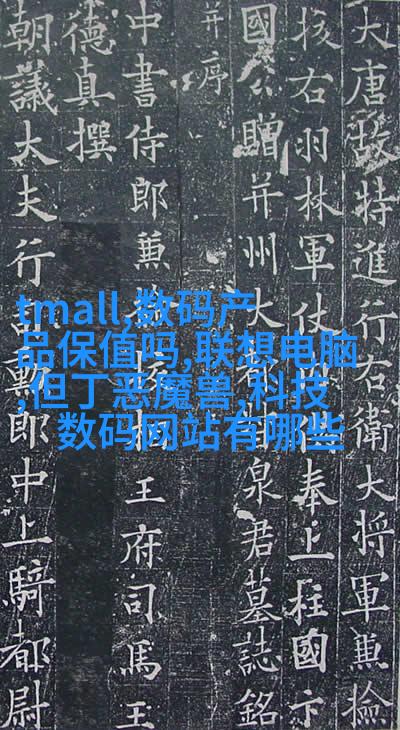 大唐故特進行右衛大將軍兼撿
挍右羽林軍仗奉上柱國卞
國公贈并州大泉君墓誌銘
并序
中書侍郎兼王府司馬王
德真撰
朝議大夫行勳郎中上騎都尉
tmall,数码产
品保值吗,联想电脑
,但丁恶魔兽,科技
数码网站有哪些